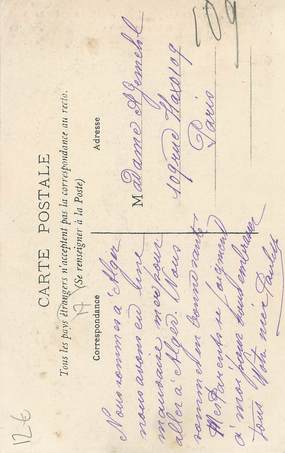 CARTE POSTALE
Tous les pays étrangers n'acceptent pas la correspondance au recto.
(Se renseigner à la Poste)
Correspondance
Adresse
Nous sommes à Alger
nous avons eu une
mauvaise mer pour
aller à Alger. Nous
sommes en bonne santé
Mes Parents se joignent
à moi pour vous embrasser
tous Votre nièce
Madame
109 rue Haxo 109
Paris
109
12€